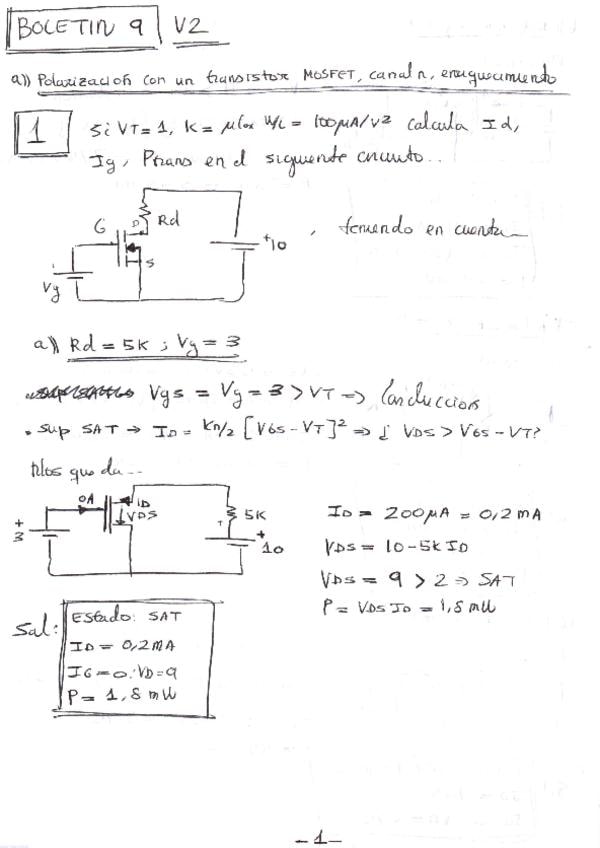 BOLETIN 9 V2
a)) Polarización con un transistor MOSFET, canal n, enriquecimiento
1 Si VT=1, K= μCox W/L = 100μA/V2 calcula Id,
Ig, Ptrans en el siguiente circuito..
G D Rd
S
+10 , teniendo en cuenta
Vg
a)) Rd = 5K ; Vg = 3
Vgs = Vg = 3 > VT => Conduccion
• sup SAT → ID = Kn/2 [VGS - VT]² => ¿ VDS > VGS - VT?
Nos queda...
0A ID
VDS 5K
+ 3
+ 10
ID = 200μA = 0,2mA
VDS = 10-5K ID
VDS = 9 > 2 => SAT
P = VDS ID = 1,8 mW
Sol:
Estado: SAT
ID = 0,2mA
IG=0; VD=9
P= 1,8 mW
-1-